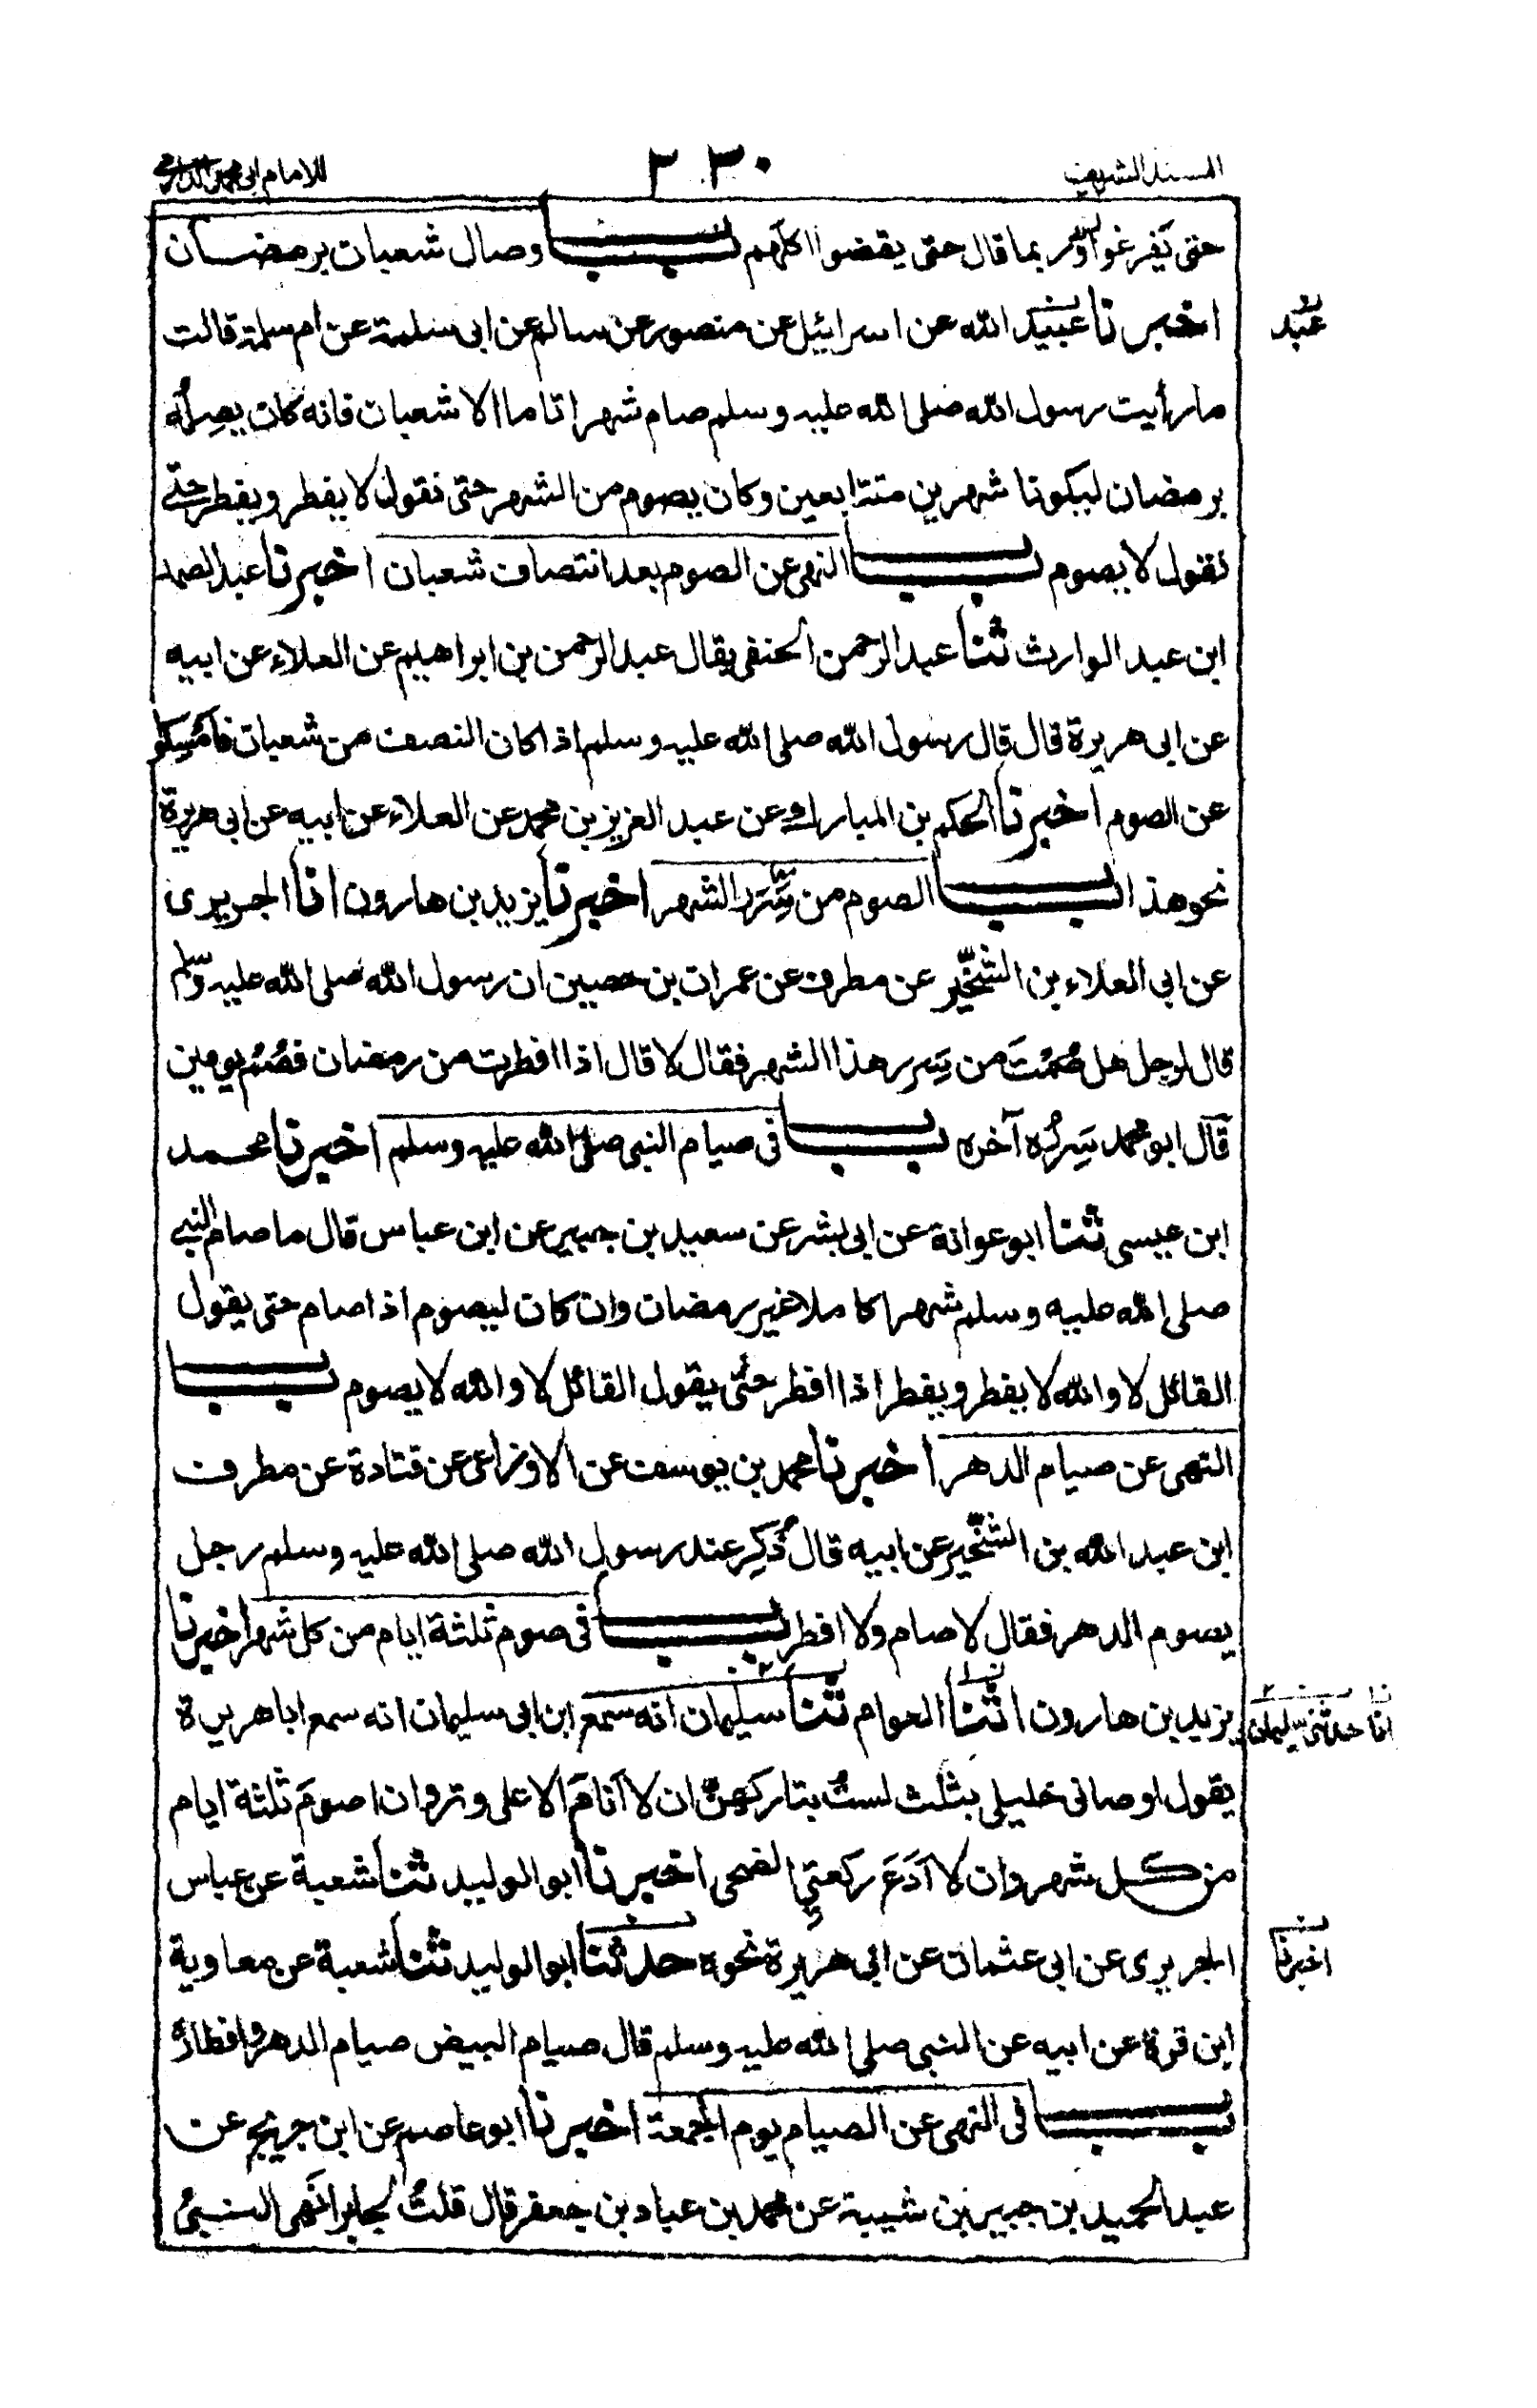 المسند الشريف
٢٣٠
للامام ابى محمد الدارمى
حتى يفرغوا او بما قال حتى يقضوا اكلهم باب وصال شعبان برمضان
اخبرنا عبيد الله عن اسرائيل عن منصور عن سالم عن ابى سلمة عن ام سلمة قالت
عبد
ما رأيت رسول الله صلى الله عليه وسلم صام شهرا تاما الا شعبان فانه كان يصله
برمضان ليكونا شهرين متتابعين وكان يصوم من الشهر حتى نقول لا يفطر ويفطر حتى
نقول لا يصوم باب النهى عن الصوم بعد انتصاف شعبان اخبرنا عبد الصمد
ابن عبد الوارث ثنا عبد الرحمن الحنفى يقال عبد الرحمن بن ابراهيم عن العلاء عن ابيه
عن ابى هريرة قال قال رسول الله صلى الله عليه وسلم اذا كان النصف من شعبان فأمسكوا
عن الصوم اخبرنا الحكم بن المبارك عن عبد العزيز بن محمد عن العلاء عن ابيه عن ابى هريرة
نحو هذا باب الصوم من سرر الشهر اخبرنا يزيد بن هارون انا الجريرى
عن ابى العلاء بن الشخير عن مطرف عن عمران بن حصين ان رسول الله صلى الله عليه وسلم
قال لرجل هل صمت من سرر هذا الشهر فقال لا قال اذا افطرت من رمضان فصم يومين
قال ابو محمد سرره آخره باب فى صيام النبى صلى الله عليه وسلم اخبرنا محمد
ابن عيسى ثنا ابو عوانة عن ابى بشر عن سعيد بن جبير عن ابن عباس قال ما صام النبى
صلى الله عليه وسلم شهرا كاملا غير رمضان وان كان ليصوم اذا صام حتى يقول
القائل لا والله لا يفطر ويفطر اذا افطر حتى يقول القائل لا والله لا يصوم باب
النهى عن صيام الدهر اخبرنا محمد بن يوسف عن الاوزاعى عن قتادة عن مطرف
ابن عبد الله بن الشخير عن ابيه قال ذكر عند رسول الله صلى الله عليه وسلم رجل
يصوم الدهر فقال لا صام ولا افطر باب فى صوم ثلثة ايام من كل شهر اخبرنا
يزيد بن هارون اثنا العوام ثنا سليمان انه سمع ابن ابى سليمان انه سمع ابا هريرة
انا حدثنى سليمان
يقول اوصانى خليلى بثلث لست بتاركهن ان لا انام الا على وتر وان اصوم ثلثة ايام
من كل شهر وان لا ادع ركعتى الضحى اخبرنا ابو الوليد ثنا شعبة عن عباس
الجريرى عن ابى عثمان عن ابى هريرة نحوه حدثنا ابو الوليد ثنا شعبة عن معاوية
اخبرنا
ابن قرة عن ابيه عن النبى صلى الله عليه وسلم قال صيام البيض صيام الدهر وافطاره
باب فى النهى عن الصيام يوم الجمعة اخبرنا ابو عاصم عن ابن جريج عن
عبد الحميد بن جبير بن شيبة عن محمد بن عباد بن جعفر قال قلت لجابر انهى النبى